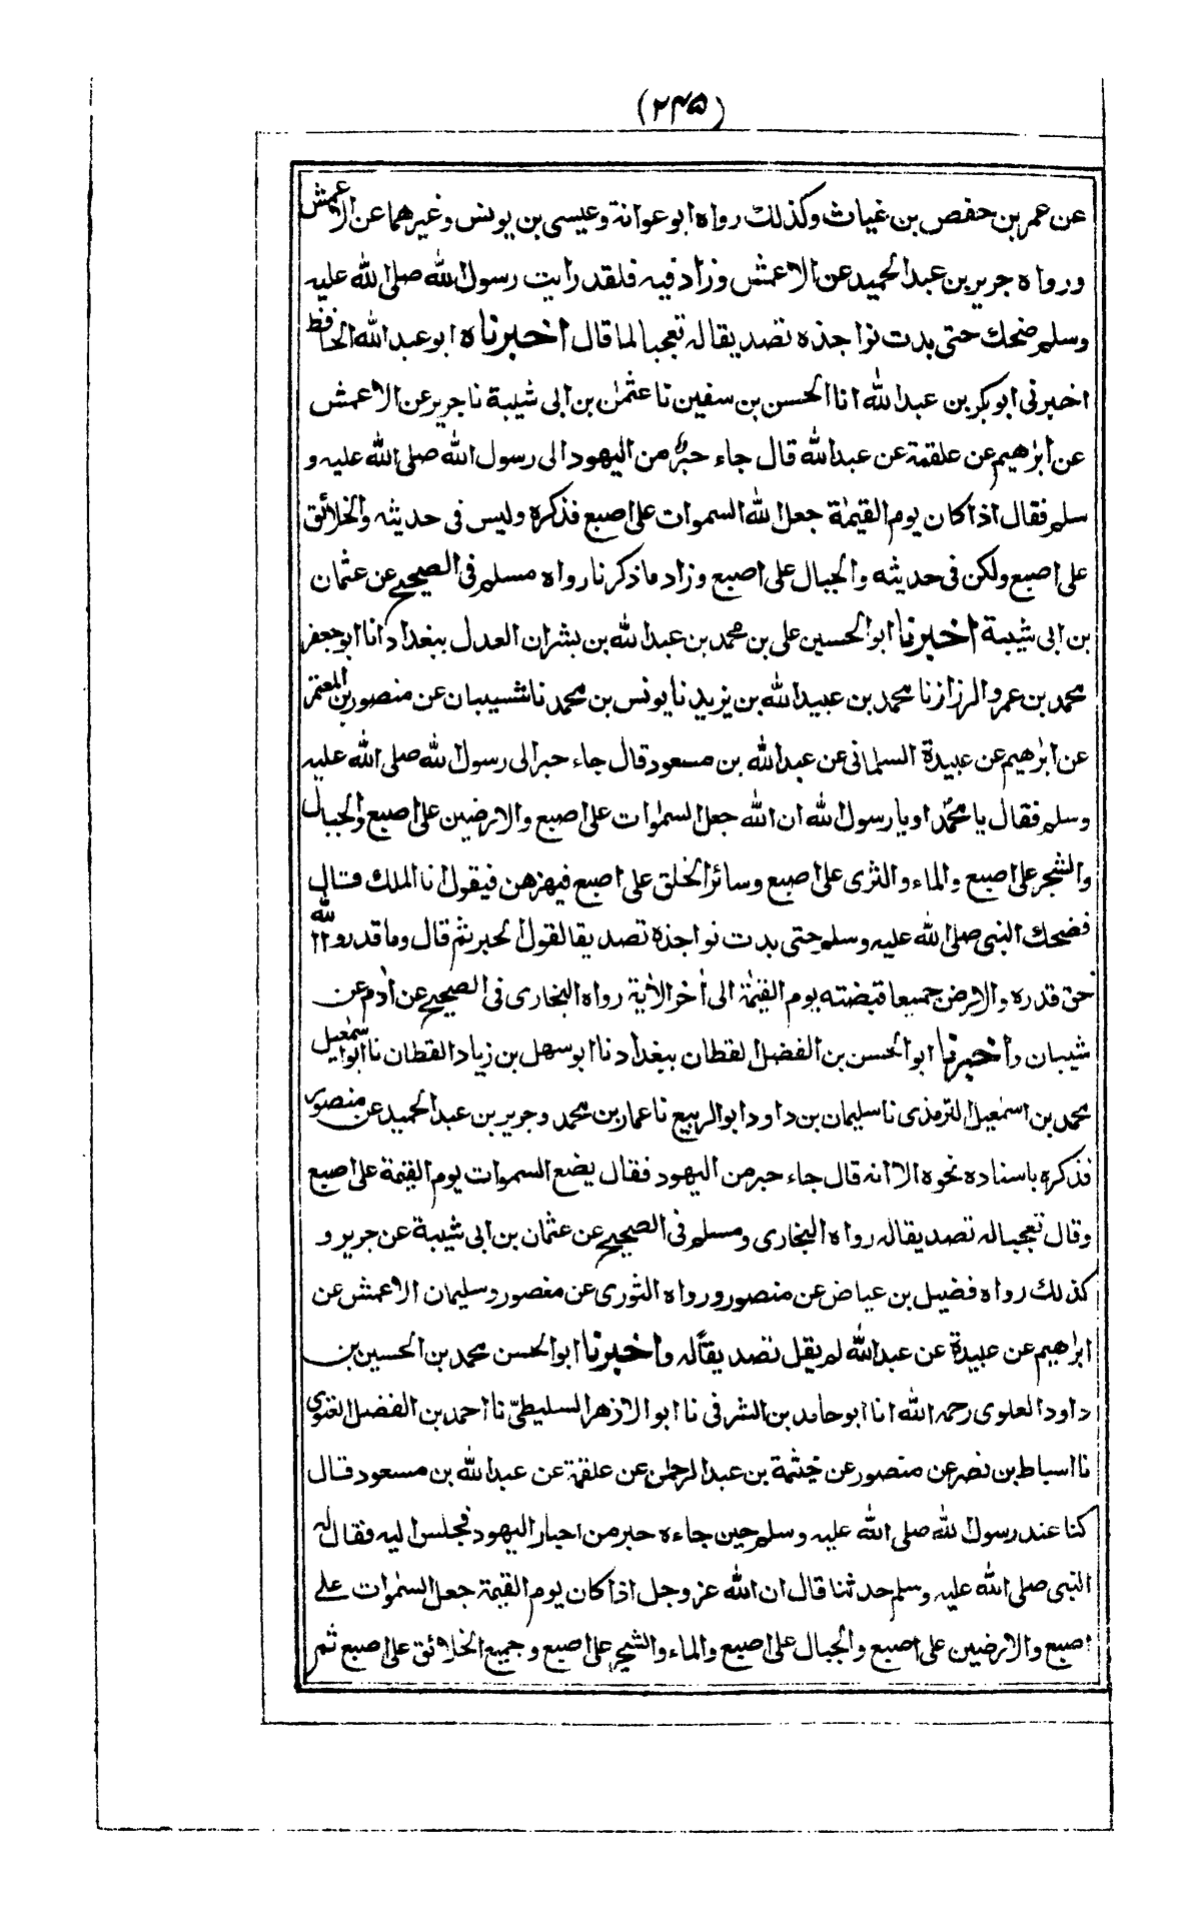 (۲۴۵)
عن عمر بن حفص بن غياث وكذلك رواه ابو عوانة وعيسى بن يونس وغيرهما عن الاعمش
ورواه جرير بن عبد الحميد عن الاعمش وزاد فيه فلقد رايت رسول الله صلى الله عليه
وسلم ضحك حتى بدت نواجذه تصديقا له تعجبا لما قال اخبرناه ابو عبد الله الحافظ
اخبرنى ابو بكر بن عبد الله انا الحسن بن سفين نا عثمٰن بن ابى شيبة نا جرير عن الاعمش
عن ابرٰهيم عن علقمة عن عبد الله قال جاء حبر من اليهود الى رسول الله صلى الله عليه و
سلم فقال اذا كان يوم القيمٰة جعل الله السموات على اصبع فذكره وليس فى حديثه والخلائق
على اصبع ولكن فى حديثه والجبال على اصبع وزاد ما ذكرنا رواه مسلم فى الصحيح عن عثمان
بن ابى شيبة اخبرنا ابو الحسين على بن محمد بن عبد الله بن بشران العدل ببغداد انا ابو جعفر
محمد بن عمرو الرزاز نا محمد بن عبيد الله بن يزيد نا يونس بن محمد نا شيبان عن منصور بن المعتمر
عن ابرٰهيم عن عبيدة السلمانى عن عبد الله بن مسعود قال جاء حبر الى رسول الله صلى الله عليه
وسلم فقال يا محمد او يا رسول الله ان الله جعل السمٰوات على اصبع والارضين على اصبع والجبال
والشجر على اصبع والماء والثرى على اصبع وسائر الخلق على اصبع فيهزهن فيقول انا الملك قال
فضحك النبى صلى الله عليه وسلم حتى بدت نواجذه تصديقا لقول الحبر ثم قال وما قدروا الله
حق قدره والارض جميعا قبضته يوم القيٰمة الى أخر الأية رواه البخارى فى الصحيح عن أدم عن
شيبان واخبرنا ابو الحسن بن الفضل القطان ببغداد نا ابو سهل بن زياد القطان نا ابو اسمٰعيل
محمد بن اسمٰعيل الترمذى نا سليمان بن داود ابو الربيع نا عمار بن محمد وجرير بن عبد الحميد عن منصور
فذكره باسناده نحوه الا انه قال جاء حبر من اليهود فقال يضع السموات يوم القيٰمة على اصبع
وقال تعجبا له تصديقا له رواه البخارى ومسلم فى الصحيح عن عثمان بن ابى شيبة عن جرير و
كذلك رواه فضيل بن عياض عن منصور ورواه الثورى عن منصور وسليمان الاعمش عن
ابرٰهيم عن عبيدة عن عبد الله لم يقل تصديقاً له واخبرنا ابو الحسن محمد بن الحسين بن
داود العلوى رحمه الله انا ابو حامد بن الشرقى نا ابو الازهر السليطىّ نا احمد بن الفضل الغنوى
نا اسباط بن نصر عن منصور عن خيثمة بن عبد الرحمٰن عن علقمة عن عبد الله بن مسعود قال
كنا عند رسول الله صلى الله عليه وسلم حين جاءه حبر من احبار اليهود فجلس اليه فقال له
النبى صلى الله عليه وسلم حدثنا قال ان الله عز وجل اذا كان يوم القيٰمة جعل السمٰوات على
اصبع والارضين على اصبع والجبال على اصبع والماء والشجر على اصبع وجميع الخلائق على اصبع ثم